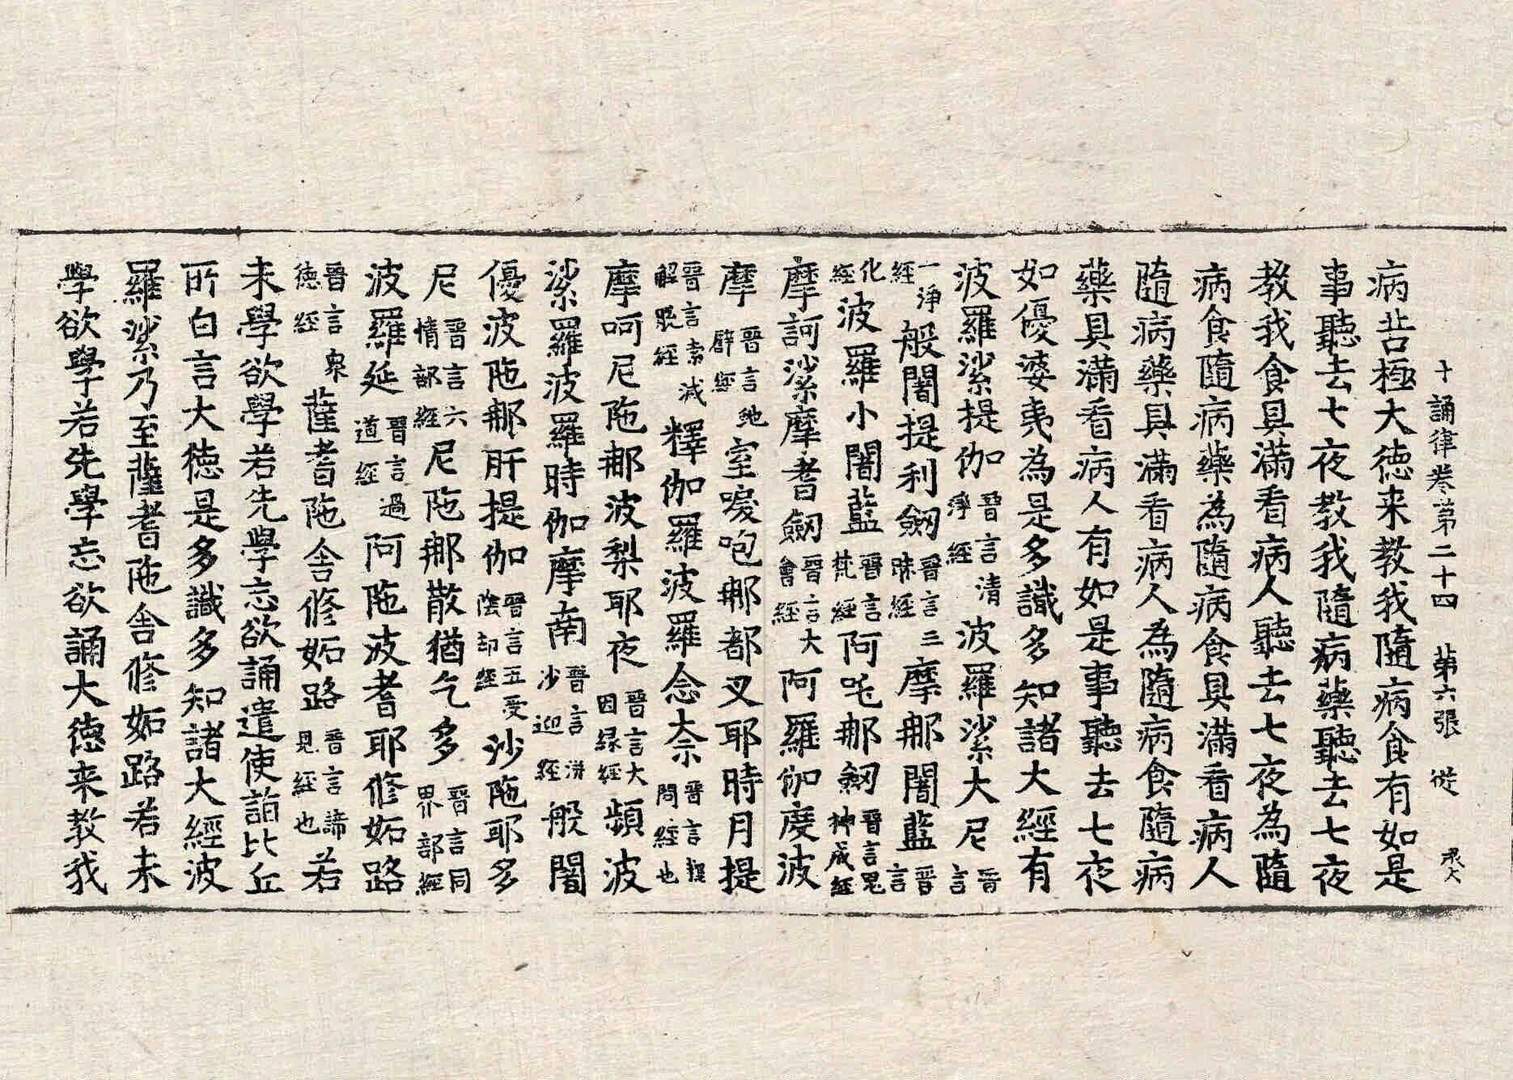 十誦律卷第二十四 第六張 從
病苦極大德来教我隨病食有如是
事聽去七夜教我隨病藥聽去七夜
教我食具滿看病人聽去七夜為隨
病食隨病藥為隨病食具滿看病人
隨病藥具滿看病人為隨病食隨病
藥具滿看病人有如是事聽去七夜
如優婆夷為是多識多知諸大經有
波羅綈提伽晉言清淨經波羅綈大尼晉言
一淨經般闍提利劒晉言三昧經摩那闍藍晉言
化經波羅小闍藍晉言梵經阿吒那劒晉言鬼神成經
摩訶綈摩耆劒晉言大會經阿羅伽度波
摩晉言虵譬經室唳咆那都叉耶時月提
晉言索滅解脫經釋伽羅波羅念柰晉言釋問經也
摩呵尼陁那波梨耶夜晉言大因緣經頻波
綈羅波羅時伽摩南晉言洴沙迎經般闍
優波陁那肝提伽晉言五受陰却經沙陁耶多
尼晉言六情部經尼陁那散猶乞多晉言同界部經
波羅延晉言過道經阿陁波耆耶修妬路
晉言衆德經薩耆陁舍修妬路晉言諦見經也若
未學欲學若先學忘欲誦遣使詣比丘
所白言大德是多識多知諸大經波
羅綈乃至薩耆陁舍修妬路若未
學欲學若先學忘欲誦大德来教我